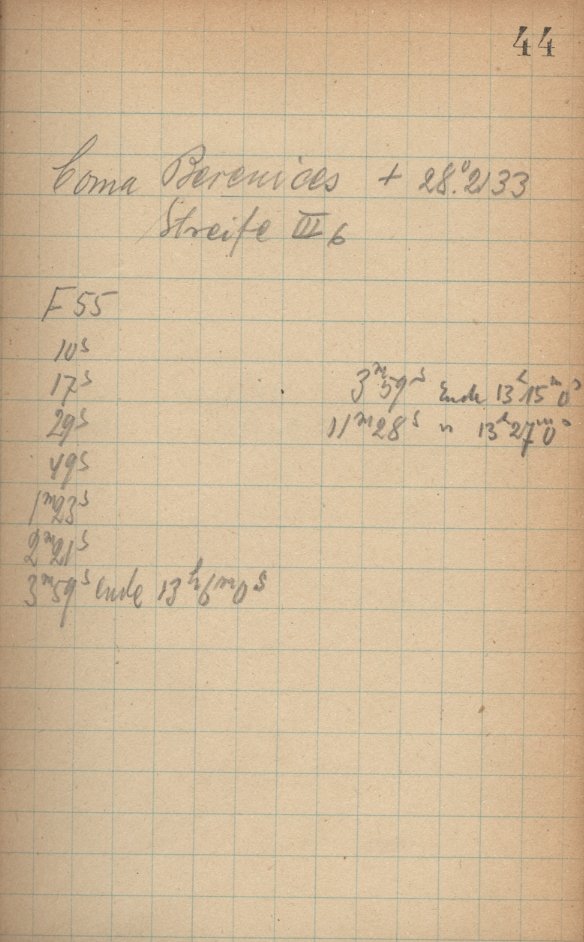 44
Coma Berenices + 28°.2133
Streife III 6
F 55
10s
17s
29s
49s
1m23s
2m21s
3m59s Ende 13h6m0s
3m59s Ende 13h15m0s
11m28s " 13h27m0s